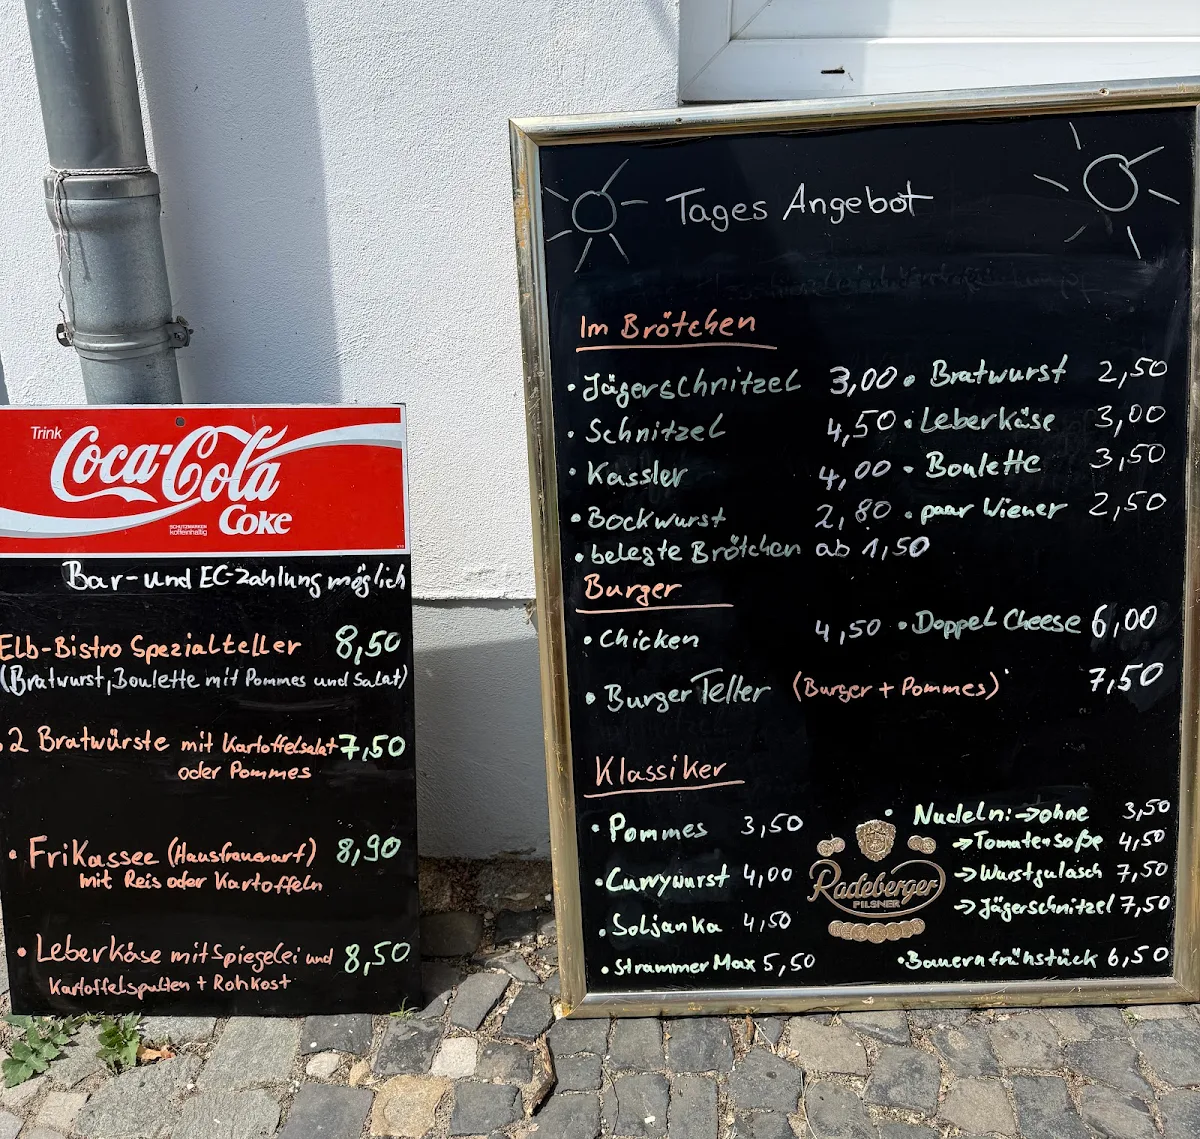 Trink
Coca-Cola
Coke
SCHUTZMARKEN
koffeinhaltig
Bar- und EC-Zahlung möglich
Elb-Bistro Spezialteller 8,50
(Bratwurst, Boulette mit Pommes und Salat)
2 Bratwürste mit Kartoffelsalat 7,50
oder Pommes
• Frikassee (Hausfrauenart) 8,90
mit Reis oder Kartoffeln
• Leberkäse mit Spiegelei und 8,50
Kartoffelspalten + Rohkost
Tages Angebot
Im Brötchen
• Jägerschnitzel 3,00 • Bratwurst 2,50
• Schnitzel 4,50 • Leberkäse 3,00
• Kassler 4,00 • Boulette 3,50
• Bockwurst 2,80 • paar Wiener 2,50
• belegte Brötchen ab 1,50
Burger
• Chicken 4,50 • Doppel Cheese 6,00
• Burger Teller (Burger + Pommes) 7,50
Klassiker
• Pommes 3,50
• Currywurst 4,00
• Soljanka 4,50
• Strammer Max 5,50
Radeberger
PILSNER
• Nudeln: → ohne 3,50
→ Tomatensoße 4,50
→ Wurstgulasch 7,50
→ Jägerschnitzel 7,50
• Bauernfrühstück 6,50